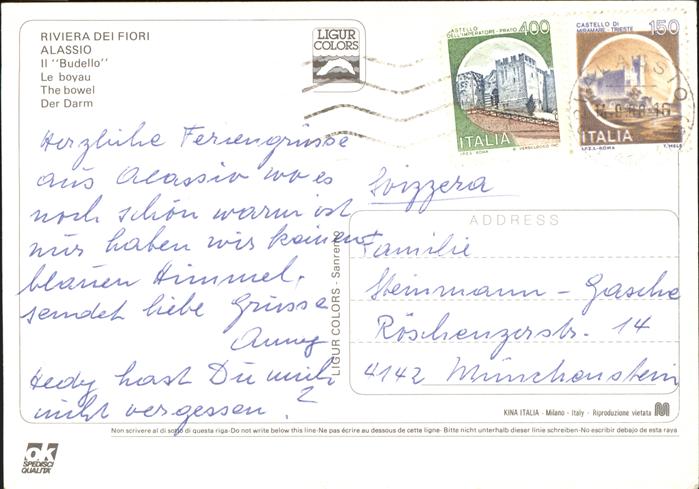 RIVIERA DEI FIORI
ALASSIO
Il "Budello"
Le boyau
The bowel
Der Darm
LIGUR
COLORS
CASTELLO
DELL'IMPERATORE - PRATO 400
ITALIA
I.P.Z.S. - ROMA
CASTELLO DI
MIRAMARE - TRIESTE 150
ITALIA
I.P.Z.S. - ROMA
Herzliche Feriengrüsse
aus Alassio wo es
noch schön warm ist
nur haben wir keinen
blauen Himmel.
sendet liebe Grüsse
Anny
Hedy hast Du mich
nicht vergessen ?
LIGUR COLORS - Sanremo
Svizzera
ADDRESS
Familie
Steinmann - Gasche
Röschenzerstr. 14
4142 Münchenstein
KINA ITALIA - Milano - Italy - Riproduzione vietata
Non scrivere al di sotto di questa riga-Do not write below this line-Ne pas écrire au dessous de cette ligne- Bitte nicht unterhalb dieser linie schreiben-No escribir debajo de esta raya
ok
SPEDISCI
QUALITÀ